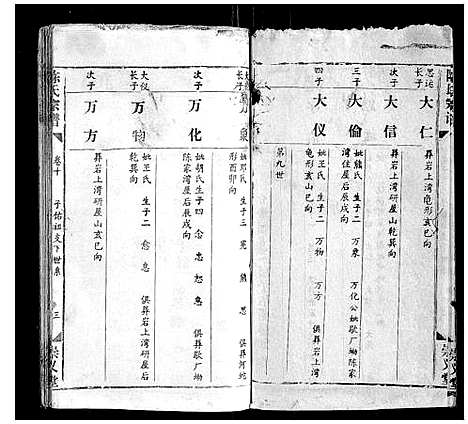 陈氏宗谱
思运长子
大仁
葬岩上湾龟形玄巳向
次子
大信
葬岩上湾研屋山乾巽向
三子
大倫
姚熊氏 生子二 万象 万化公姚歇厂坳陈家
湾住屋后辰戌向
四子
大仪
姚王氏 生子二 万物 万方 俱葬岩上湾
龟形玄山巳向
第九世
大倫长子
万象
姚邓氏 生子三 宪 熊 思 俱葬河蛇
形酉卯向
次子
万化
姚胡氏生子四 念 忠 恕 息 俱葬歇厂坳
陈家湾屋后辰戌向
大仪长子
万物
姚王氏 生子二 愈 息 俱葬岩上湾研屋后
乾巽向
次子
万方
葬岩上湾研屋山玄巳向
陈氏宗谱
卷十
子佑祖支下世系
三
崇义堂
崇义堂